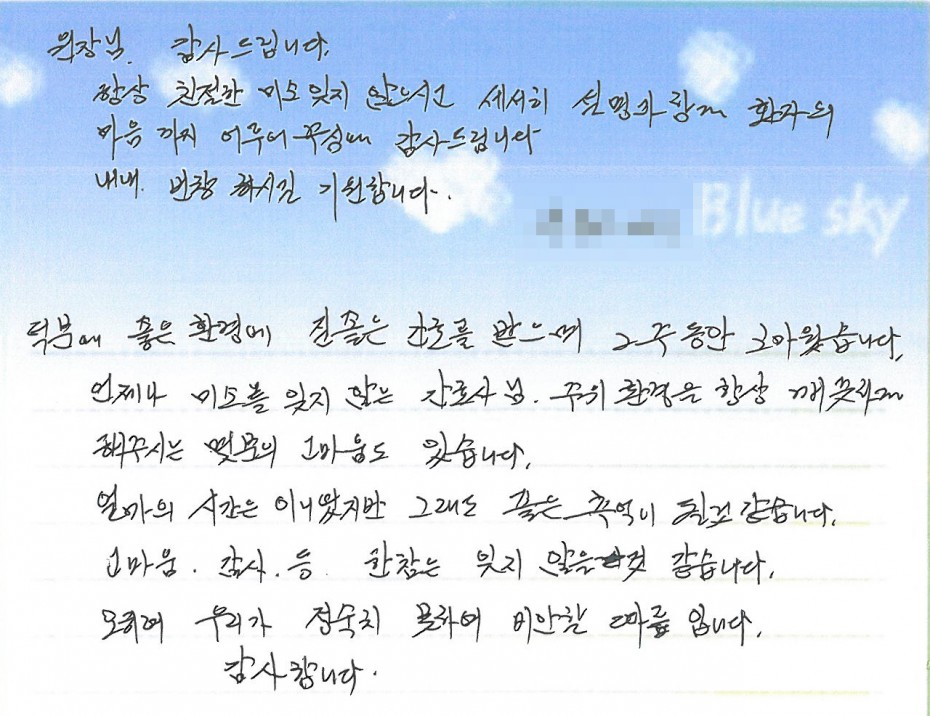 원장님. 감사드립니다.
항상 친절한 미소 잊지 않으시고 세세히 설명과 함께 환자의
마음 까지 어루어주심에 감사드립니다
내내. 번창 하시길 기원합니다.
Blue sky
덕분에 좋은 환경에 진좋은 간호를 받으며 2주동안 고마웠습니다.
언제나 미소를 잊지 않는 간호사님. 주위 환경을 항상 깨끗하게
해주시는 몇분의 고마움도 있습니다.
얼마의 시간은 아니었지만 그래도 좋은 추억이 될것 같습니다.
고마움. 감사. 등. 한참은 잊지 않을 것 같습니다.
오히려 우리가 정숙치 못하여 미안할 따름 입니다.
감사합니다.